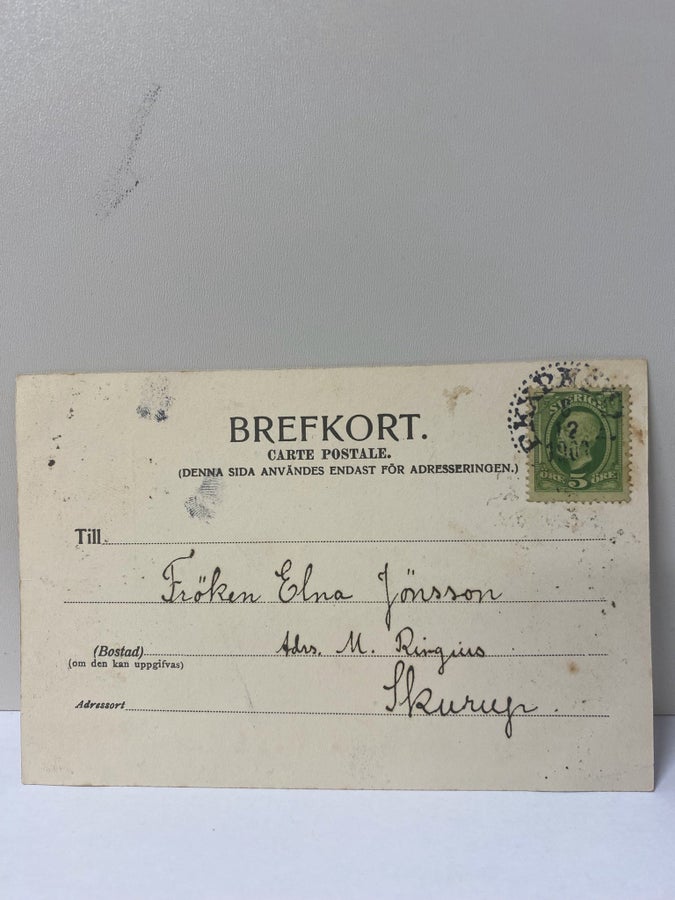 BREFKORT.
CARTE POSTALE.
(DENNA SIDA ANVÄNDES ENDAST FÖR ADRESSERINGEN.)
SVERIGE
ÖRE 5 ÖRE
Till
Fröken Elna Jönsson
(Bostad) Adrs. M. Ringius
(om den kan uppgifvas)
Adressort Skurup.